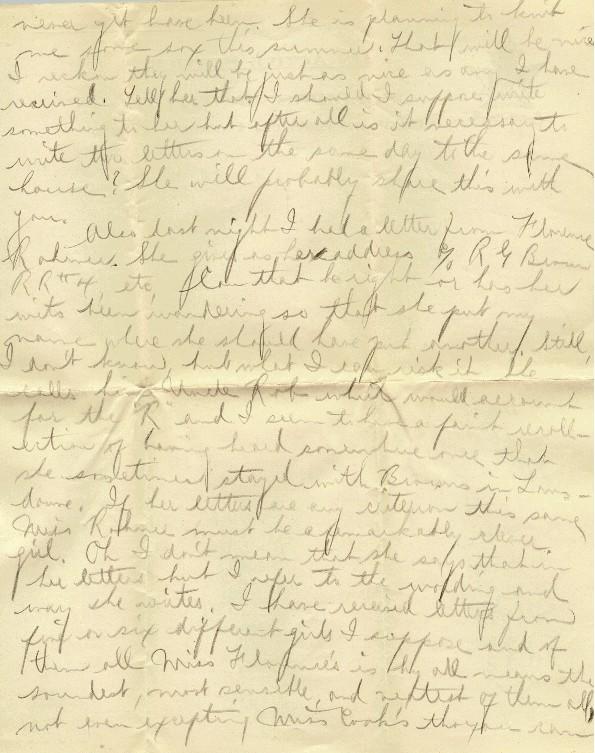 never yet have been. She is planning to knit
me some sox this summer. That will be nice
I reckon they will be just as nice as any I have
received. Tell her that I should I suppose write
something to her but after all is it necessary to
write two letters on the same day to the same
house? She will probably share this with
you.
Also last night I had a letter from Florence
She gives as her address c/o R G Brown
RR #4 etc Can that be right or has her
wits been wandering so that she put my
name where she should have put another. Still,
I don't know but what I can risk it. She
calls him Uncle Rob which would account
for the "R" and I seem to have a faint recoll-
ection of having heard somewhere once that
she sometimes stayed with Browns in Lans-
downe. If her letters are any criterion this same
Miss must be a remarkably clever
girl. Oh I don't mean that she says that in
her letters but I refer to the wording and
way she writes. I have received letters from
five or six different girls I suppose and of
them all Miss Florence's is by all means the
soundest, most sensible, and neatest of them all
not even excepting Miss Cook's tho you can